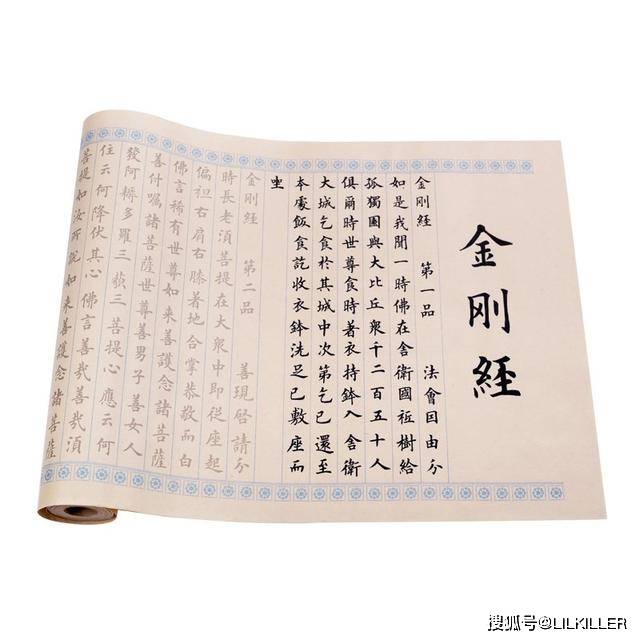 金剛經
金剛經 第一品 法會因由分
如是我聞一時佛在舍衛國祇樹給
孤獨園與大比丘衆千二百五十人
俱爾時世尊食時著衣持鉢入舍衛
大城乞食於其城中次第乞已還至
本處飯食訖收衣鉢洗足已敷座而
坐
金剛經 第二品 善現啓請分
時長老須菩提在大衆中即從座起
偏袒右肩右膝著地合掌恭敬而白
佛言稀有世尊如来善護念諸菩薩
善付囑諸菩薩世尊善男子善女人
發阿耨多羅三藐三菩提心應云何
住云何降伏其心 佛言善哉善哉須
菩提如汝所說如来善護念諸菩薩
搜狐号@LILKILLER